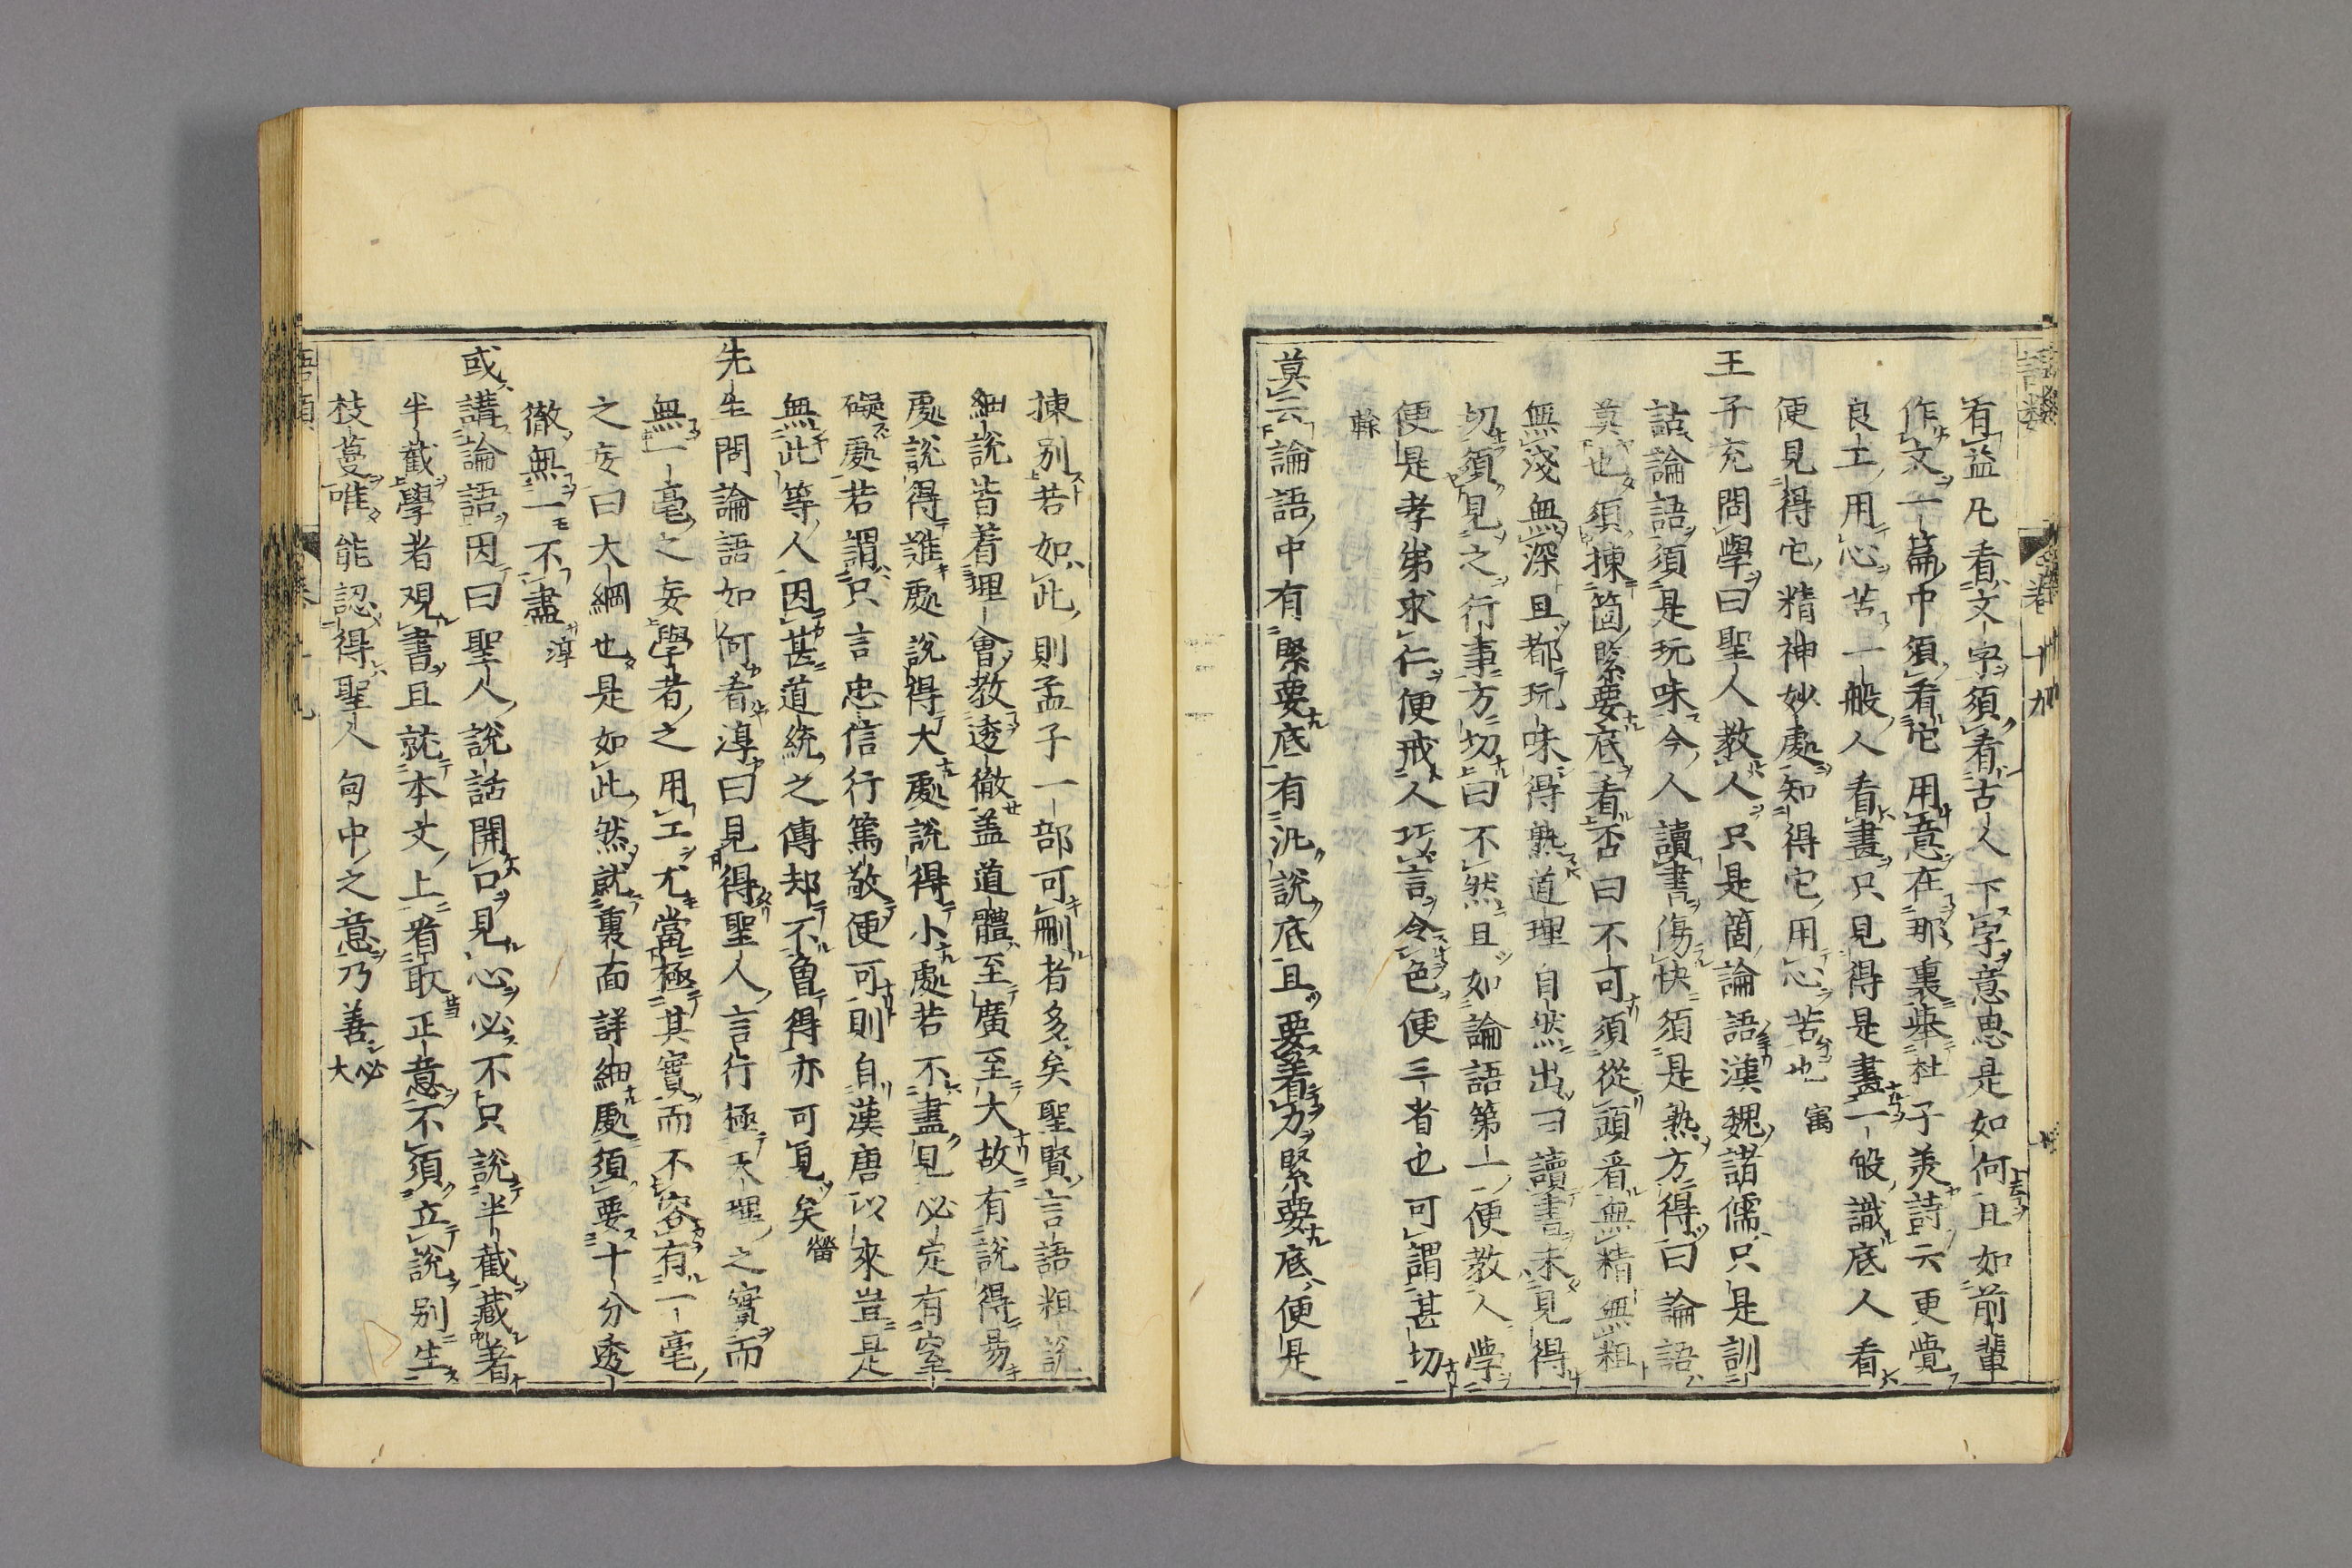 有益凡看文字須看古人下字意思是如何且如前輩
作文一篇中須看佗用意在那裏舉杜子美詩云更覺
良工用心苦一般人看畫只見得是畫一般識底人看
便見得它精神妙處知得它用心苦也㝢
王子充問學曰聖人教人只是箇論語漢魏諸儒只是訓
詁論語須是玩味今人讀書傷快須是熟方得曰論語
莫也須揀箇緊要底看否曰不可須從頭看無精無粗
無淺無深且都玩味得熟道理自然出曰讀書未見得
切須見之行事方切曰不然且如論語第一便教人學
便是孝弟求仁便戒人巧言令色便三省也可謂甚切
榦
莫云論語中有緊要底有汎說底且要着力緊要底便是
揀別若如此則孟子一部可刪者多矣聖賢言語粗說
細說皆着理會教透徹盖道體至廣至大故有說得易
處說得難處說得大處說得小處若不盡見必定有窒
礙處若謂只言忠信行篤敬便可則自漢唐以來豈是
無此等人因甚道統之傳却不曾得亦可見矣㽦
先生問論語如何看淳曰見得聖人言行極天理之實而
無一毫之妄學者之用工尤當極其實而不容有一毫
之妄曰大綱也是如此然就裏面詳細處須要十分透
徹無一不盡淳
或講論語因曰聖人說話開口見心必不只說半截藏着
半截學者觀書且就本文上看取正意不須立說別生
枝蔓唯能認得聖人句中之意乃善必大